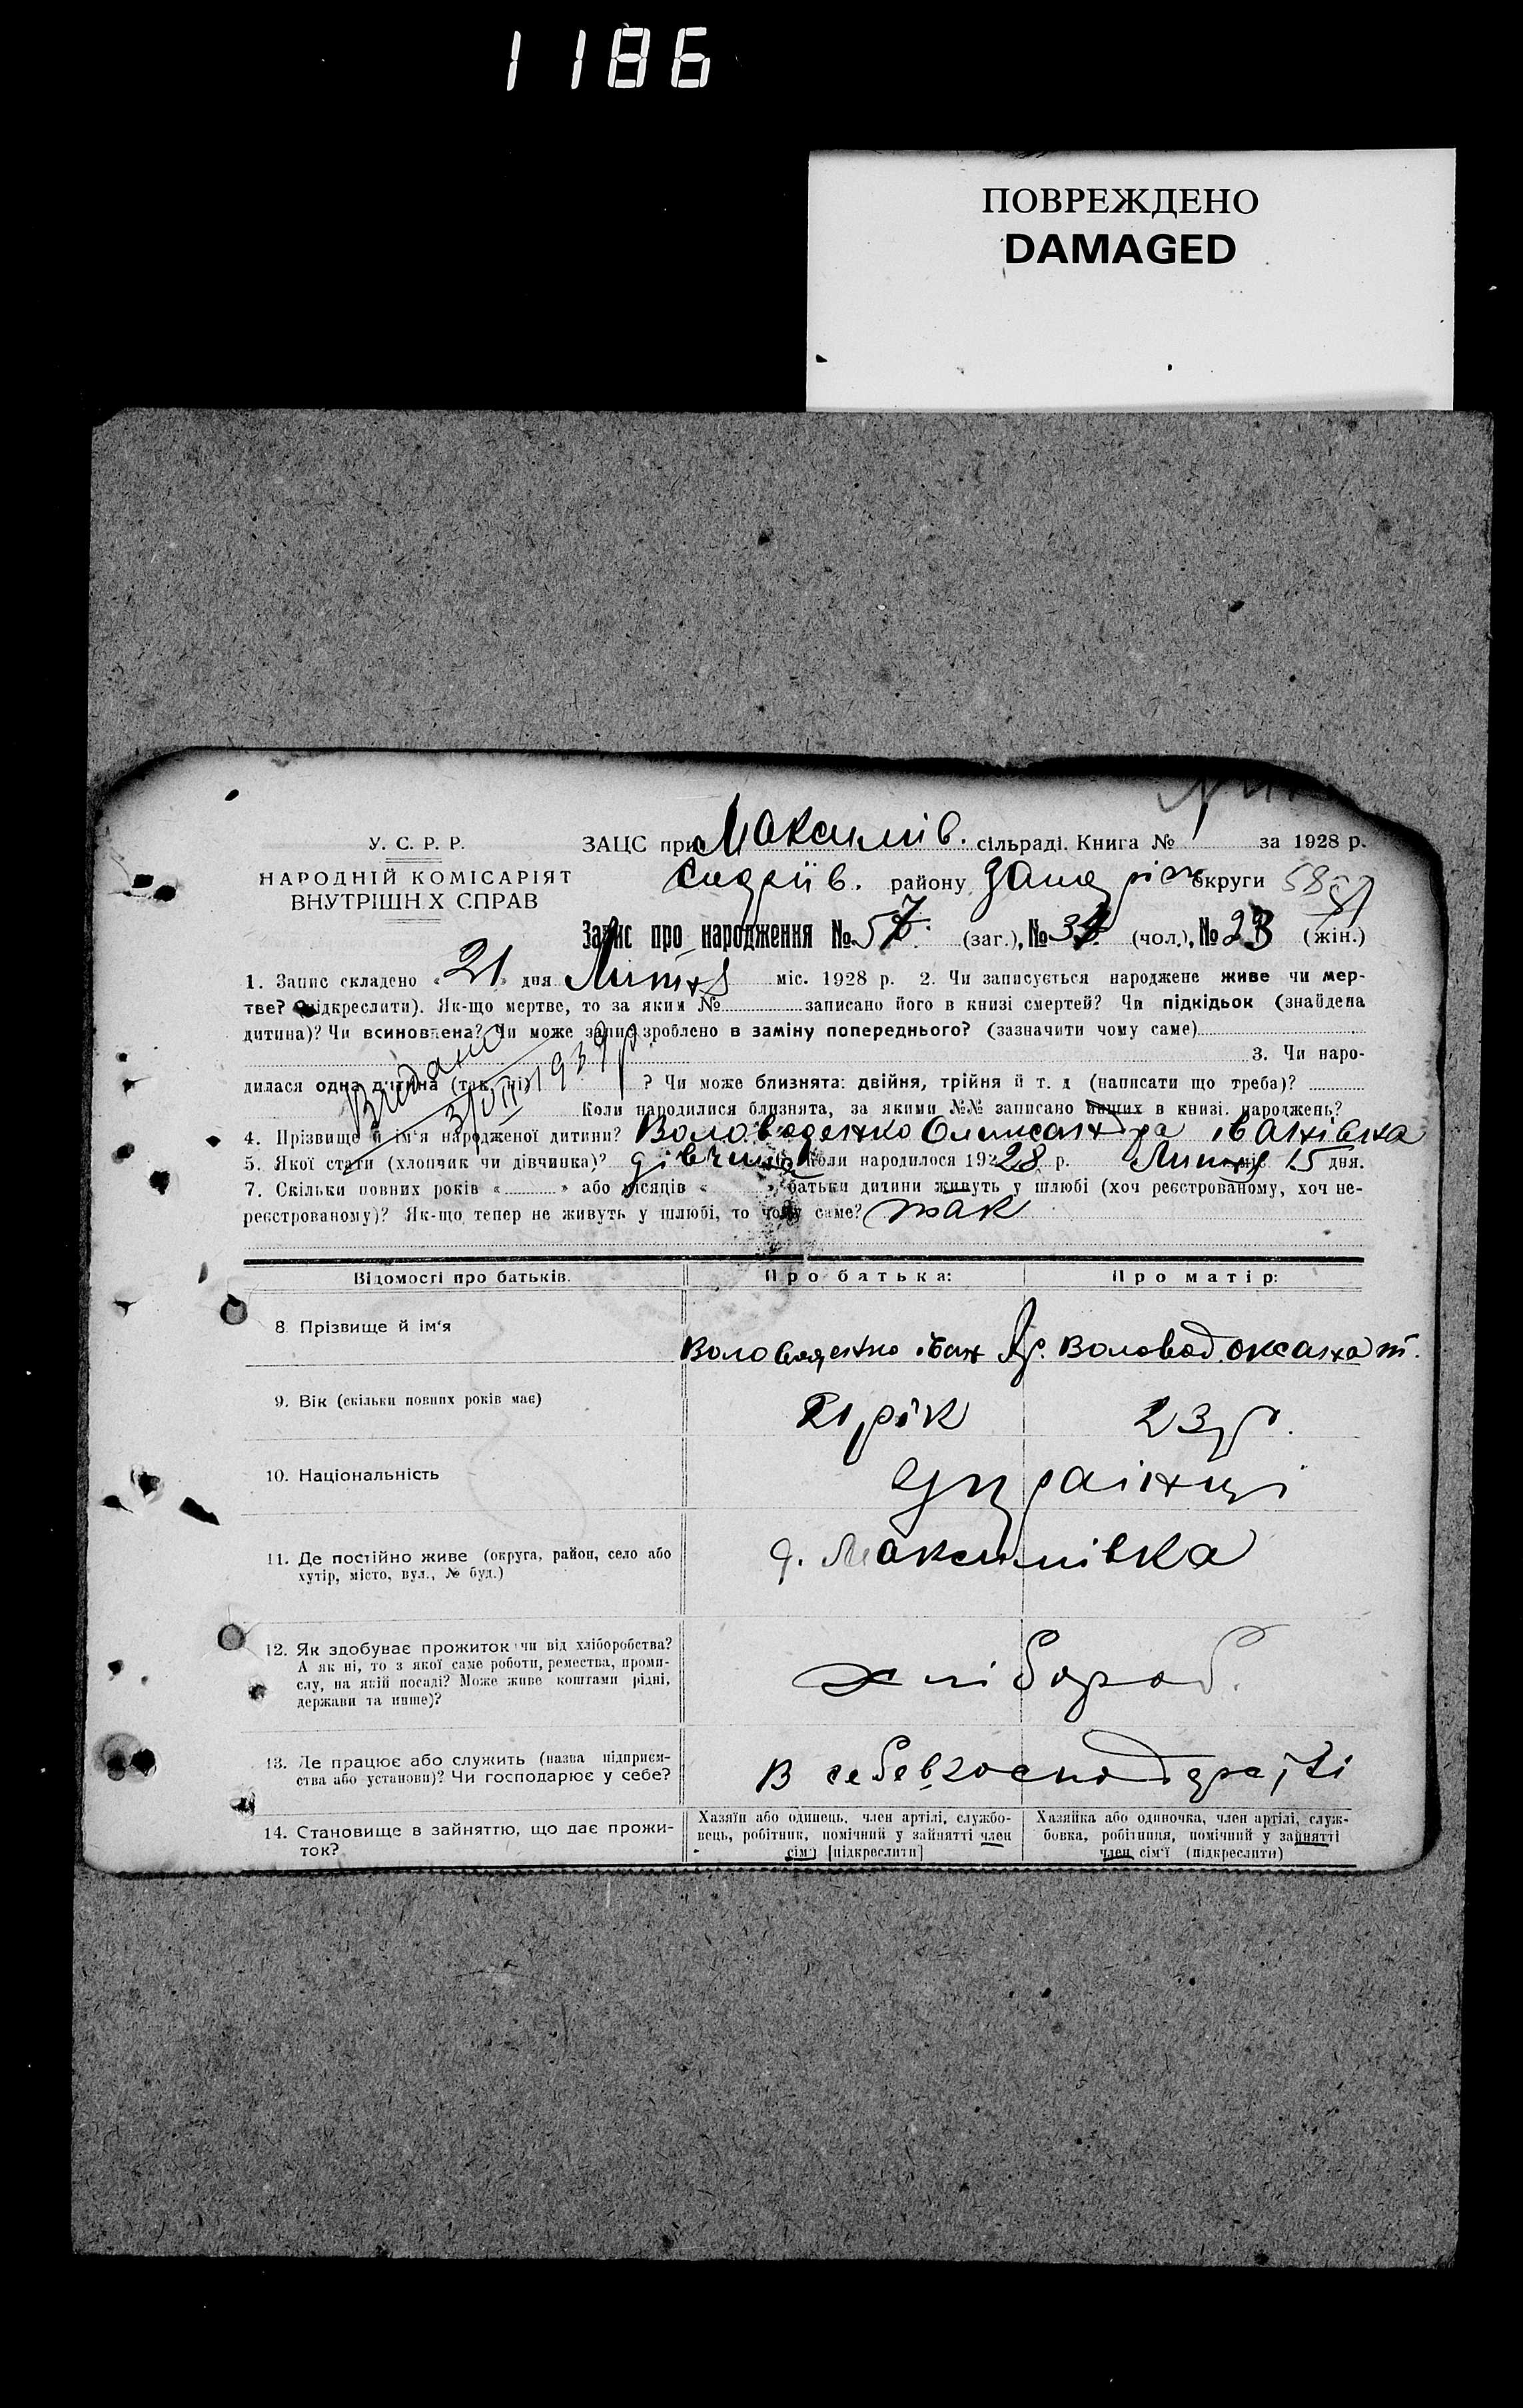 1186
ПОВРЕЖДЕНО
DAMAGED
У. С. Р. Р.
НАРОДНІЙ КОМІСАРІЯТ
ВНУТРІШН Х СПРАВ
ЗАЦС при Максимів. сільраді. Книга № за 1928 р.
району округи
Запис про народження № 57 (заг.), № (чол.), № 23 (жін.)
1. Запис складено « 21 » дня Липня міс. 1928 р. 2. Чи записується народжене живе чи мер-
тве? (підкреслити). Як-що мертве, то за яким № записано його в книзі смертей? Чи підкідьок (знайдена
дитина)? Чи всиновлена? Чи може запис зроблено в заміну попереднього? (зазначити чому саме)
3. Чи наро-
дилася одна дитина (так, ні) ? Чи може близнята: двійня, трійня й т. д (написати що треба)?
Коли народилися близнята, за якими №№ записано инших в книзі народжень?
4. Прізвище й ім'я народженої дитини? Олександра іванівна
5. Якої стати (хлопчик чи дівчинка)? дівчина Коли народилося 1928 р. Липня міс 15 дня.
7. Скільки повних років « » або місяців « » батьки дитини живуть у шлюбі (хоч реєстрованому, хоч не-
реєстрованому)? Як-що тепер не живуть у шлюбі, то чому саме? так
Відомості про батьків.
Про батька:
Про матір:
8. Прізвище й ім'я
іван Воловод. оксана т.
9. Вік (скільки повних років має)
21 рік
23 р.
10. Національність
українці
11. Де постійно живе (округа, район, село або
хутір, місто, вул., № буд.)
с. Максимівка
12. Як здобуває прожиток чи від хліборобства?
А як ні, то з якої саме роботи, ремества, проми-
слу, на якій посаді? Може живе коштами рідні,
держави та инше)?
хлібороб.
13. Де працює або служить (назва підприєм-
ства або установи)? Чи господарює у себе?
В себе в господарстві
14. Становище в зайняттю, що дає прожи-
ток?
Хазяїн або одинець, член артілі, службо-
вець, робітник, помічний у зайнятті член
сім'ї [підкреслити]
Хазяйка або одиночка, член артілі, служ-
бовка, робітниця, помічний у зайнятті
член сім'ї (підкреслити)